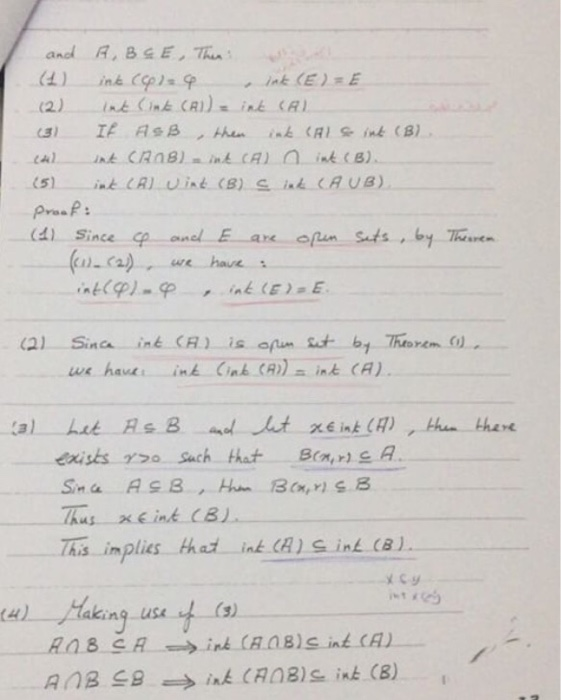 and A, B ⊆ E, Then:
(1) int (φ) = φ , int (E) = E
(2) int (int (A)) = int (A)
(3) If A ⊆ B, then int (A) ⊆ int (B).
(4) int (A∩B) = int (A) ∩ int (B).
(5) int (A) ∪ int (B) ⊆ int (A∪B).
proof:
(1) Since φ and E are open sets, by Theorem
((1)-(2)), we have:
int(φ) = φ , int (E) = E.
(2) Since int (A) is open set by Theorem (1),
we have: int (int (A)) = int (A).
(3) Let A ⊆ B and let x ∈ int (A), then there
exists r>0 such that B(x,r) ⊆ A.
Since A ⊆ B, then B(x,r) ⊆ B
Thus x ∈ int (B).
This implies that int (A) ⊆ int (B).
x ⊆ y
(4) Making use of (3)
A∩B ⊆ A ⟹ int (A∩B) ⊆ int (A)
A∩B ⊆ B ⟹ int (A∩B) ⊆ int (B)